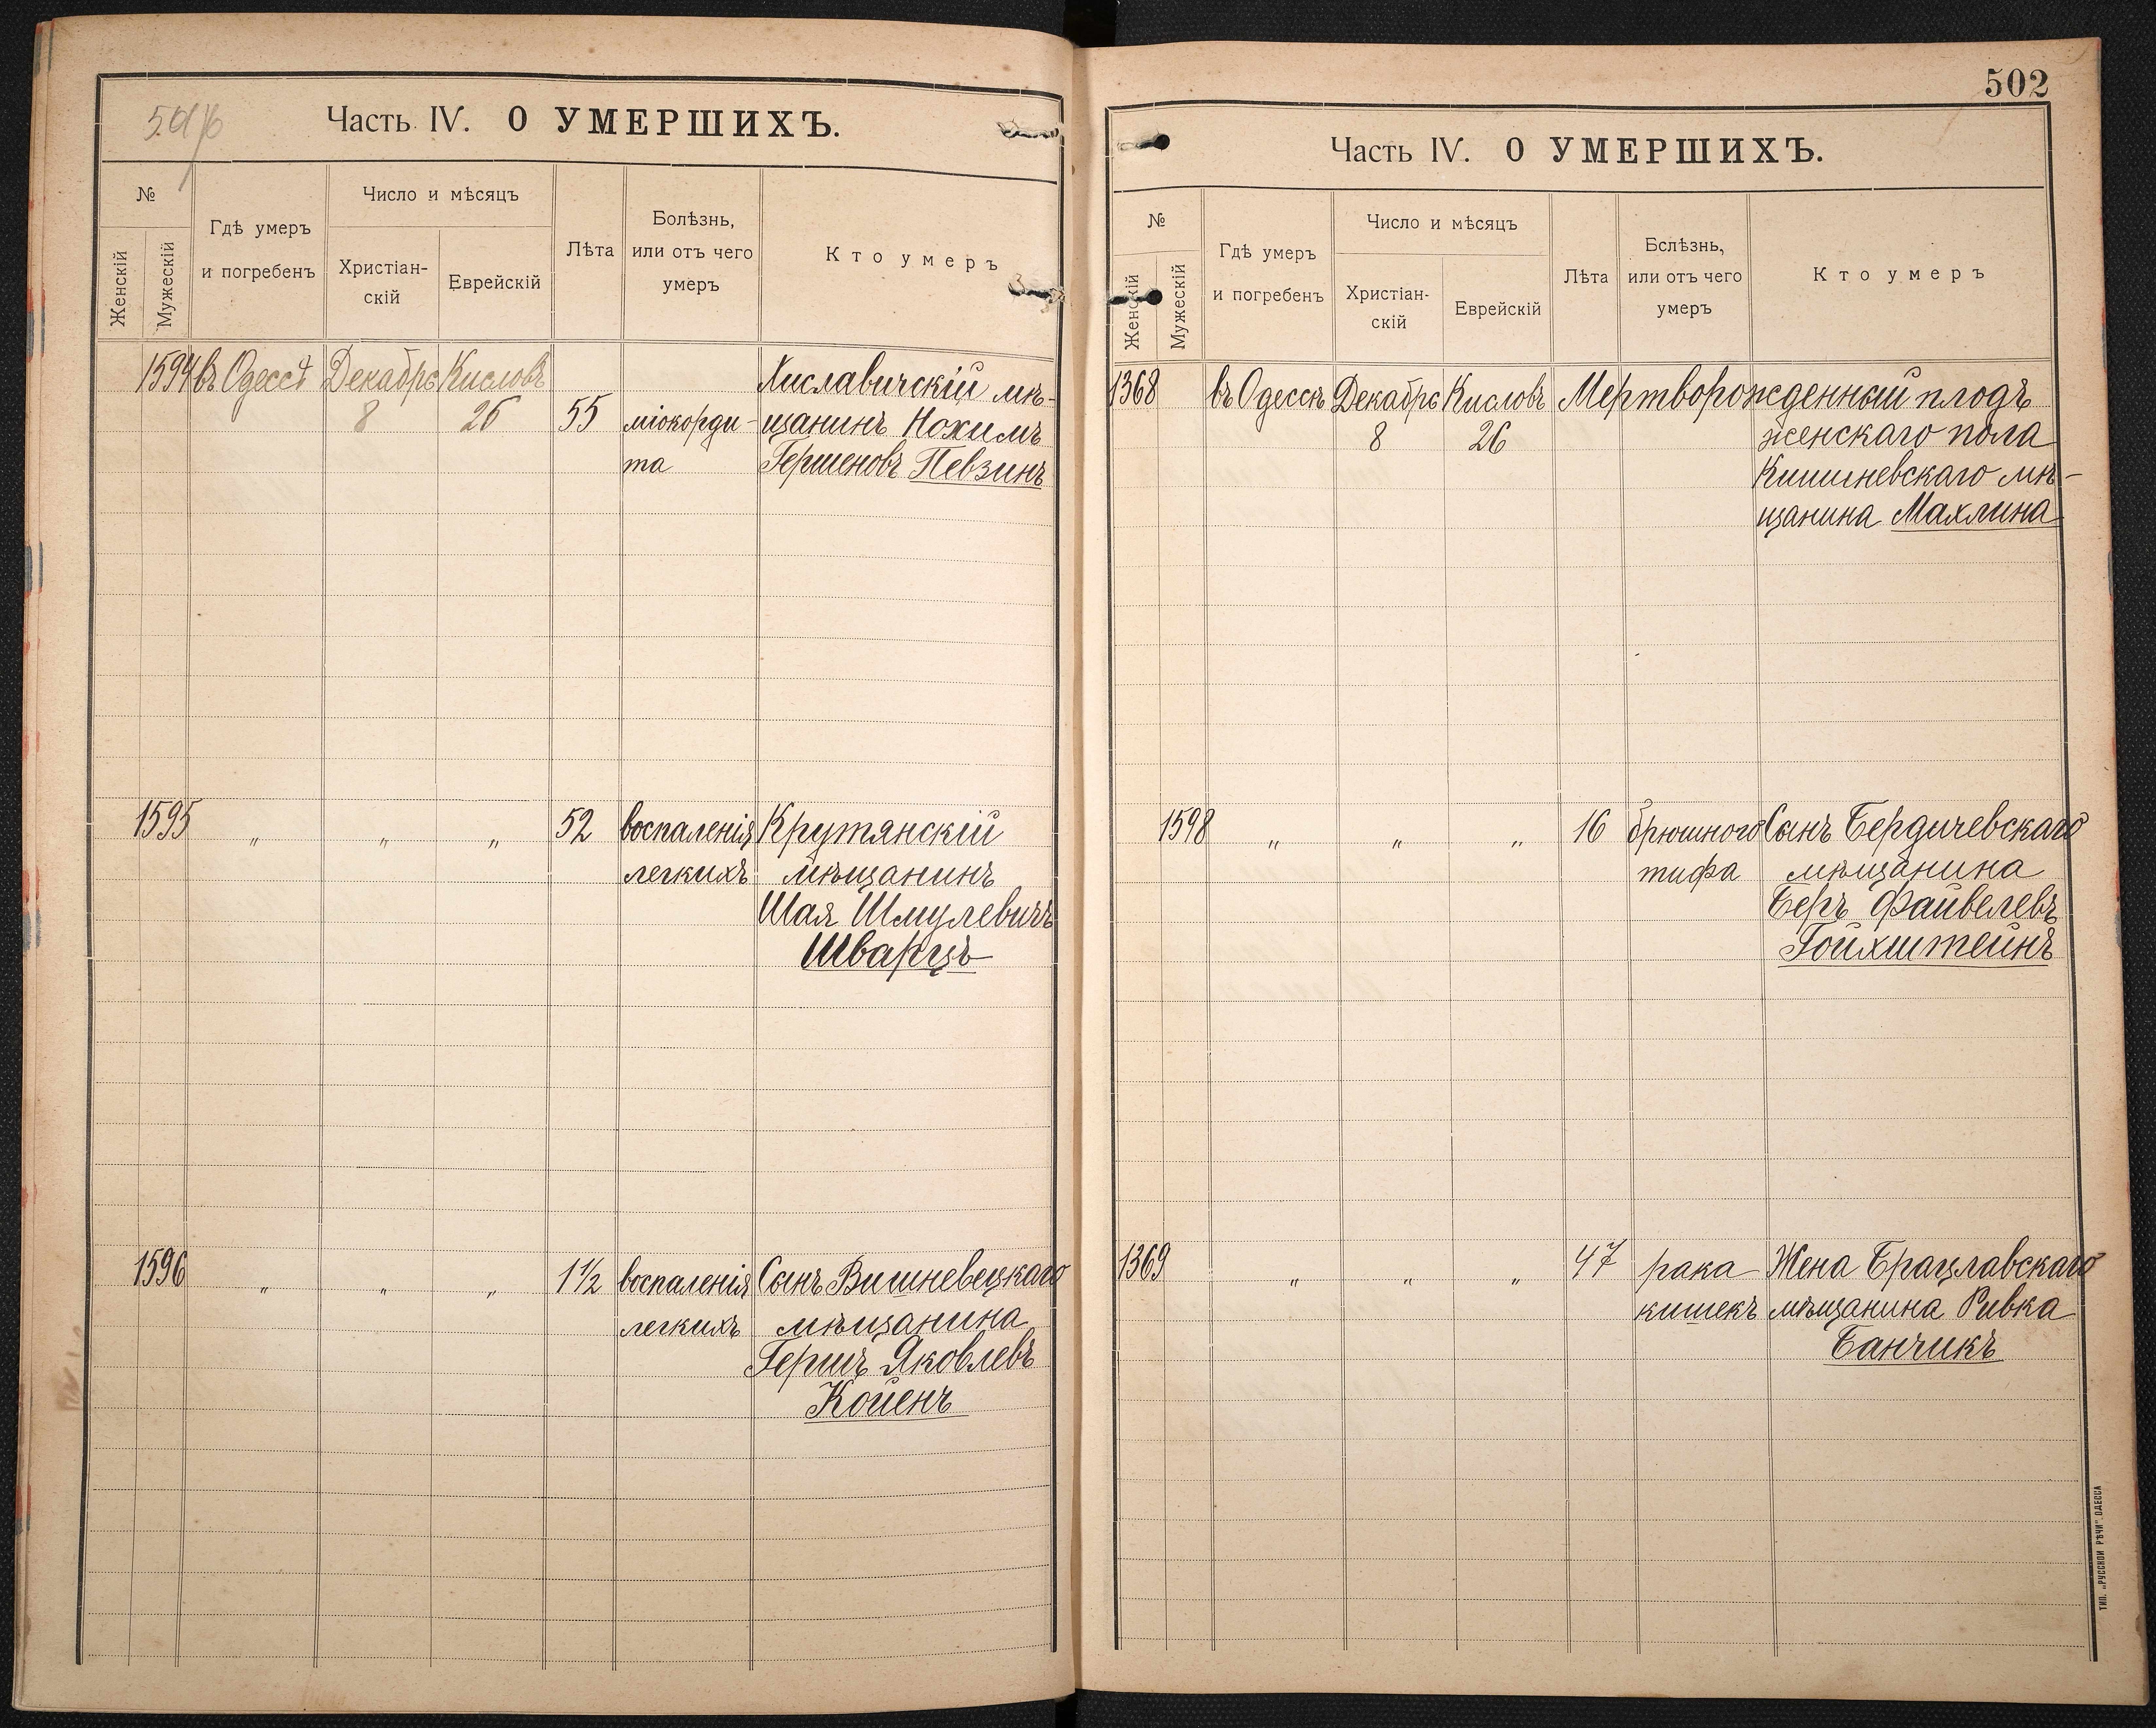 Часть IV. О УМЕРШИХЪ.
№
Женскій
Мужескій
Гдѣ умеръ
и погребенъ
Число и мѣсяцъ
Христіан-
скій
Еврейскій
Лѣта
Болѣзнь,
или отъ чего
умеръ
Кто умеръ
1594 въ Одессѣ Декабрѣ Кисловъ Хиславичскій мѣ-
8 26 55 міокорди- щанинъ Нохимъ
та Гершеновъ Певзинъ
1595 „ „ „ 52 воспаленія Крутянскій
легкихъ мѣщанинъ
Шая Шмулевичъ
Шварцъ
1596 „ „ „ 1½ воспаленія Сынъ Вишневецкаго
легкихъ мѣщанина
Гершъ Яковлевъ
Койенъ
502
Часть IV. О УМЕРШИХЪ.
№
Женскій
Мужескій
Гдѣ умеръ
и погребенъ
Число и мѣсяцъ
Христіан-
скій
Еврейскій
Лѣта
Бслѣзнь,
или отъ чего
умеръ
Кто умеръ
1368 въ Одессѣ Декабрѣ Кисловъ Мертворожденный плодъ
8 26 женскаго пола
Кишиневскаго мѣ-
щанина Махлина
1598 „ „ „ 16 брюшного Сынъ Бердичевскаго
тифа мѣщанина
Беръ Файвелевъ
Гойхштейнъ
1369 „ „ „ 47 рака Жена Брацлавскаго
кишекъ мѣщанина Ривка
Банчикъ
ТИП. „РУССКОЙ РѢЧИ“ ОДЕССА